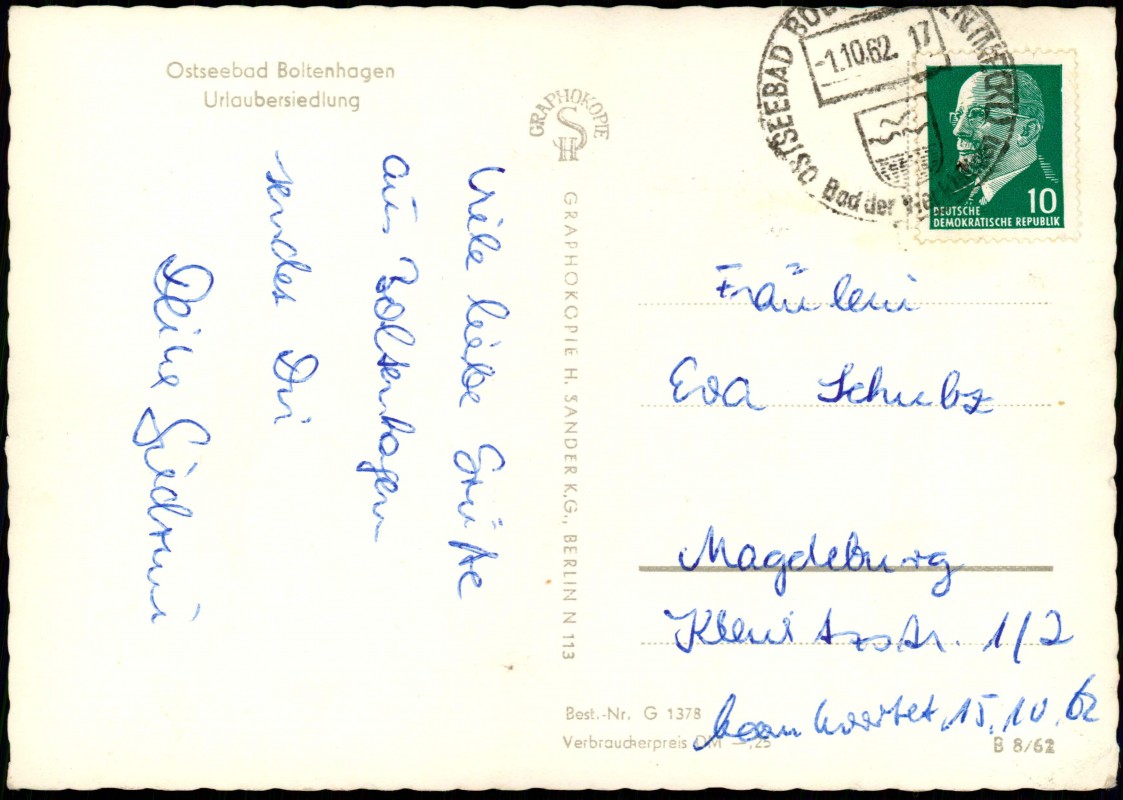 Ostseebad Boltenhagen
Urlaubersiedlung
GRAPHOKOPIE
H S
GRAPHOKOPIE H. SANDER K.G., BERLIN N 113
Viele liebe Grüße
aus Boltenhagen
sendet Dir
Deine
OSTSEEBAD
-1.10.62. 17
Bad der
10
DEUTSCHE
DEMOKRATISCHE REPUBLIK
Fräulein
Eva Schulz
Magdeburg
1/2
beantwortet 15.10.62
Best.-Nr. G 1378
Verbraucherpreis DM -,25
B 8/62